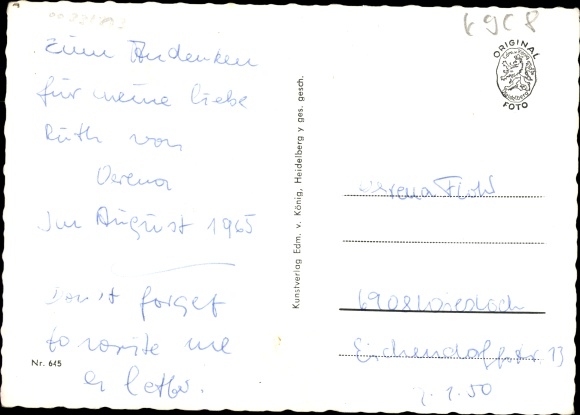 Zum Andenken
für meine liebe
Ruth von
Verena
Im August 1965
Don't forget
to write me
a letter.
Nr. 645
Kunstverlag Edm. v. König, Heidelberg y ges. gesch.
6908
ORIGINAL
FOTO
Verena
6908 Wiesloch
Eichendorffstr 13
1.50